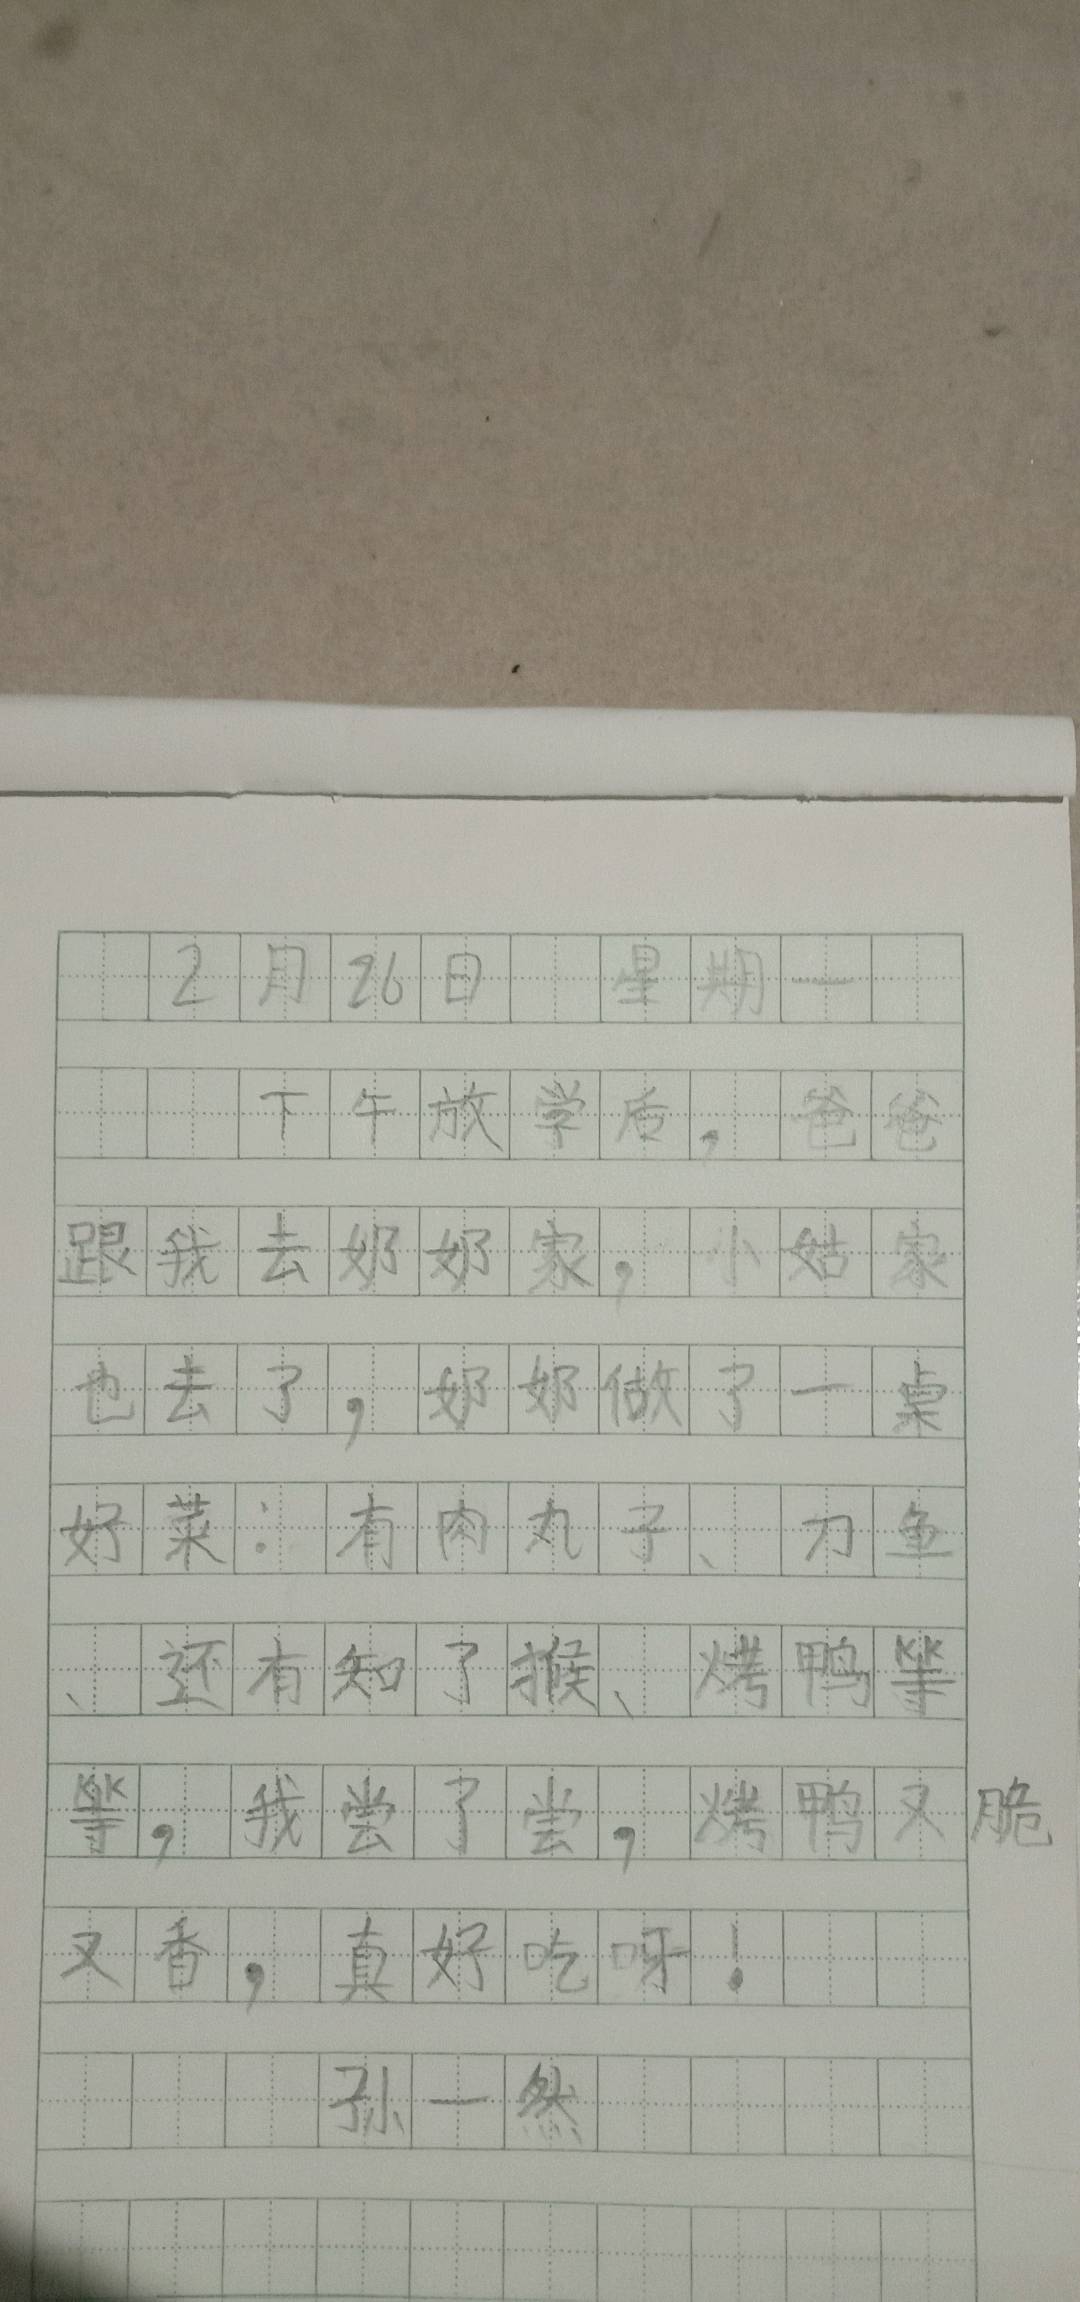 2月26日 星期一
下午放学后，爸爸
跟我去奶奶家，小姑家
也去了，奶奶做了一桌
好菜：有肉丸子、刀鱼
、还有知了猴、烤鸭等
等，我尝了尝，烤鸭又脆
又香，真好吃呀！
孙一然